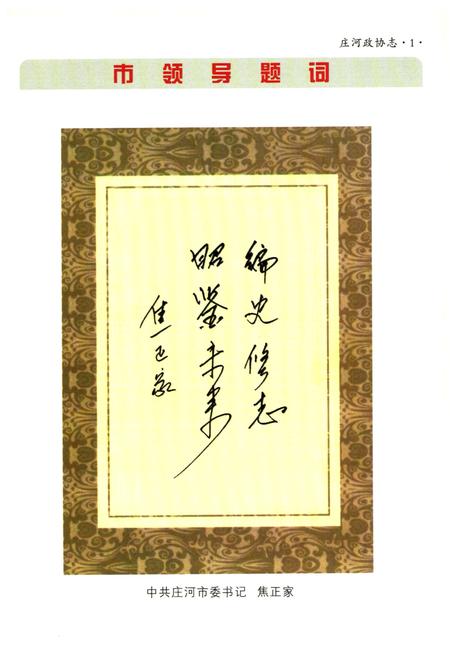 庄河政协志·1·
市领导题词
编史修志
昭鉴未来
焦正家
中共庄河市委书记 焦正家